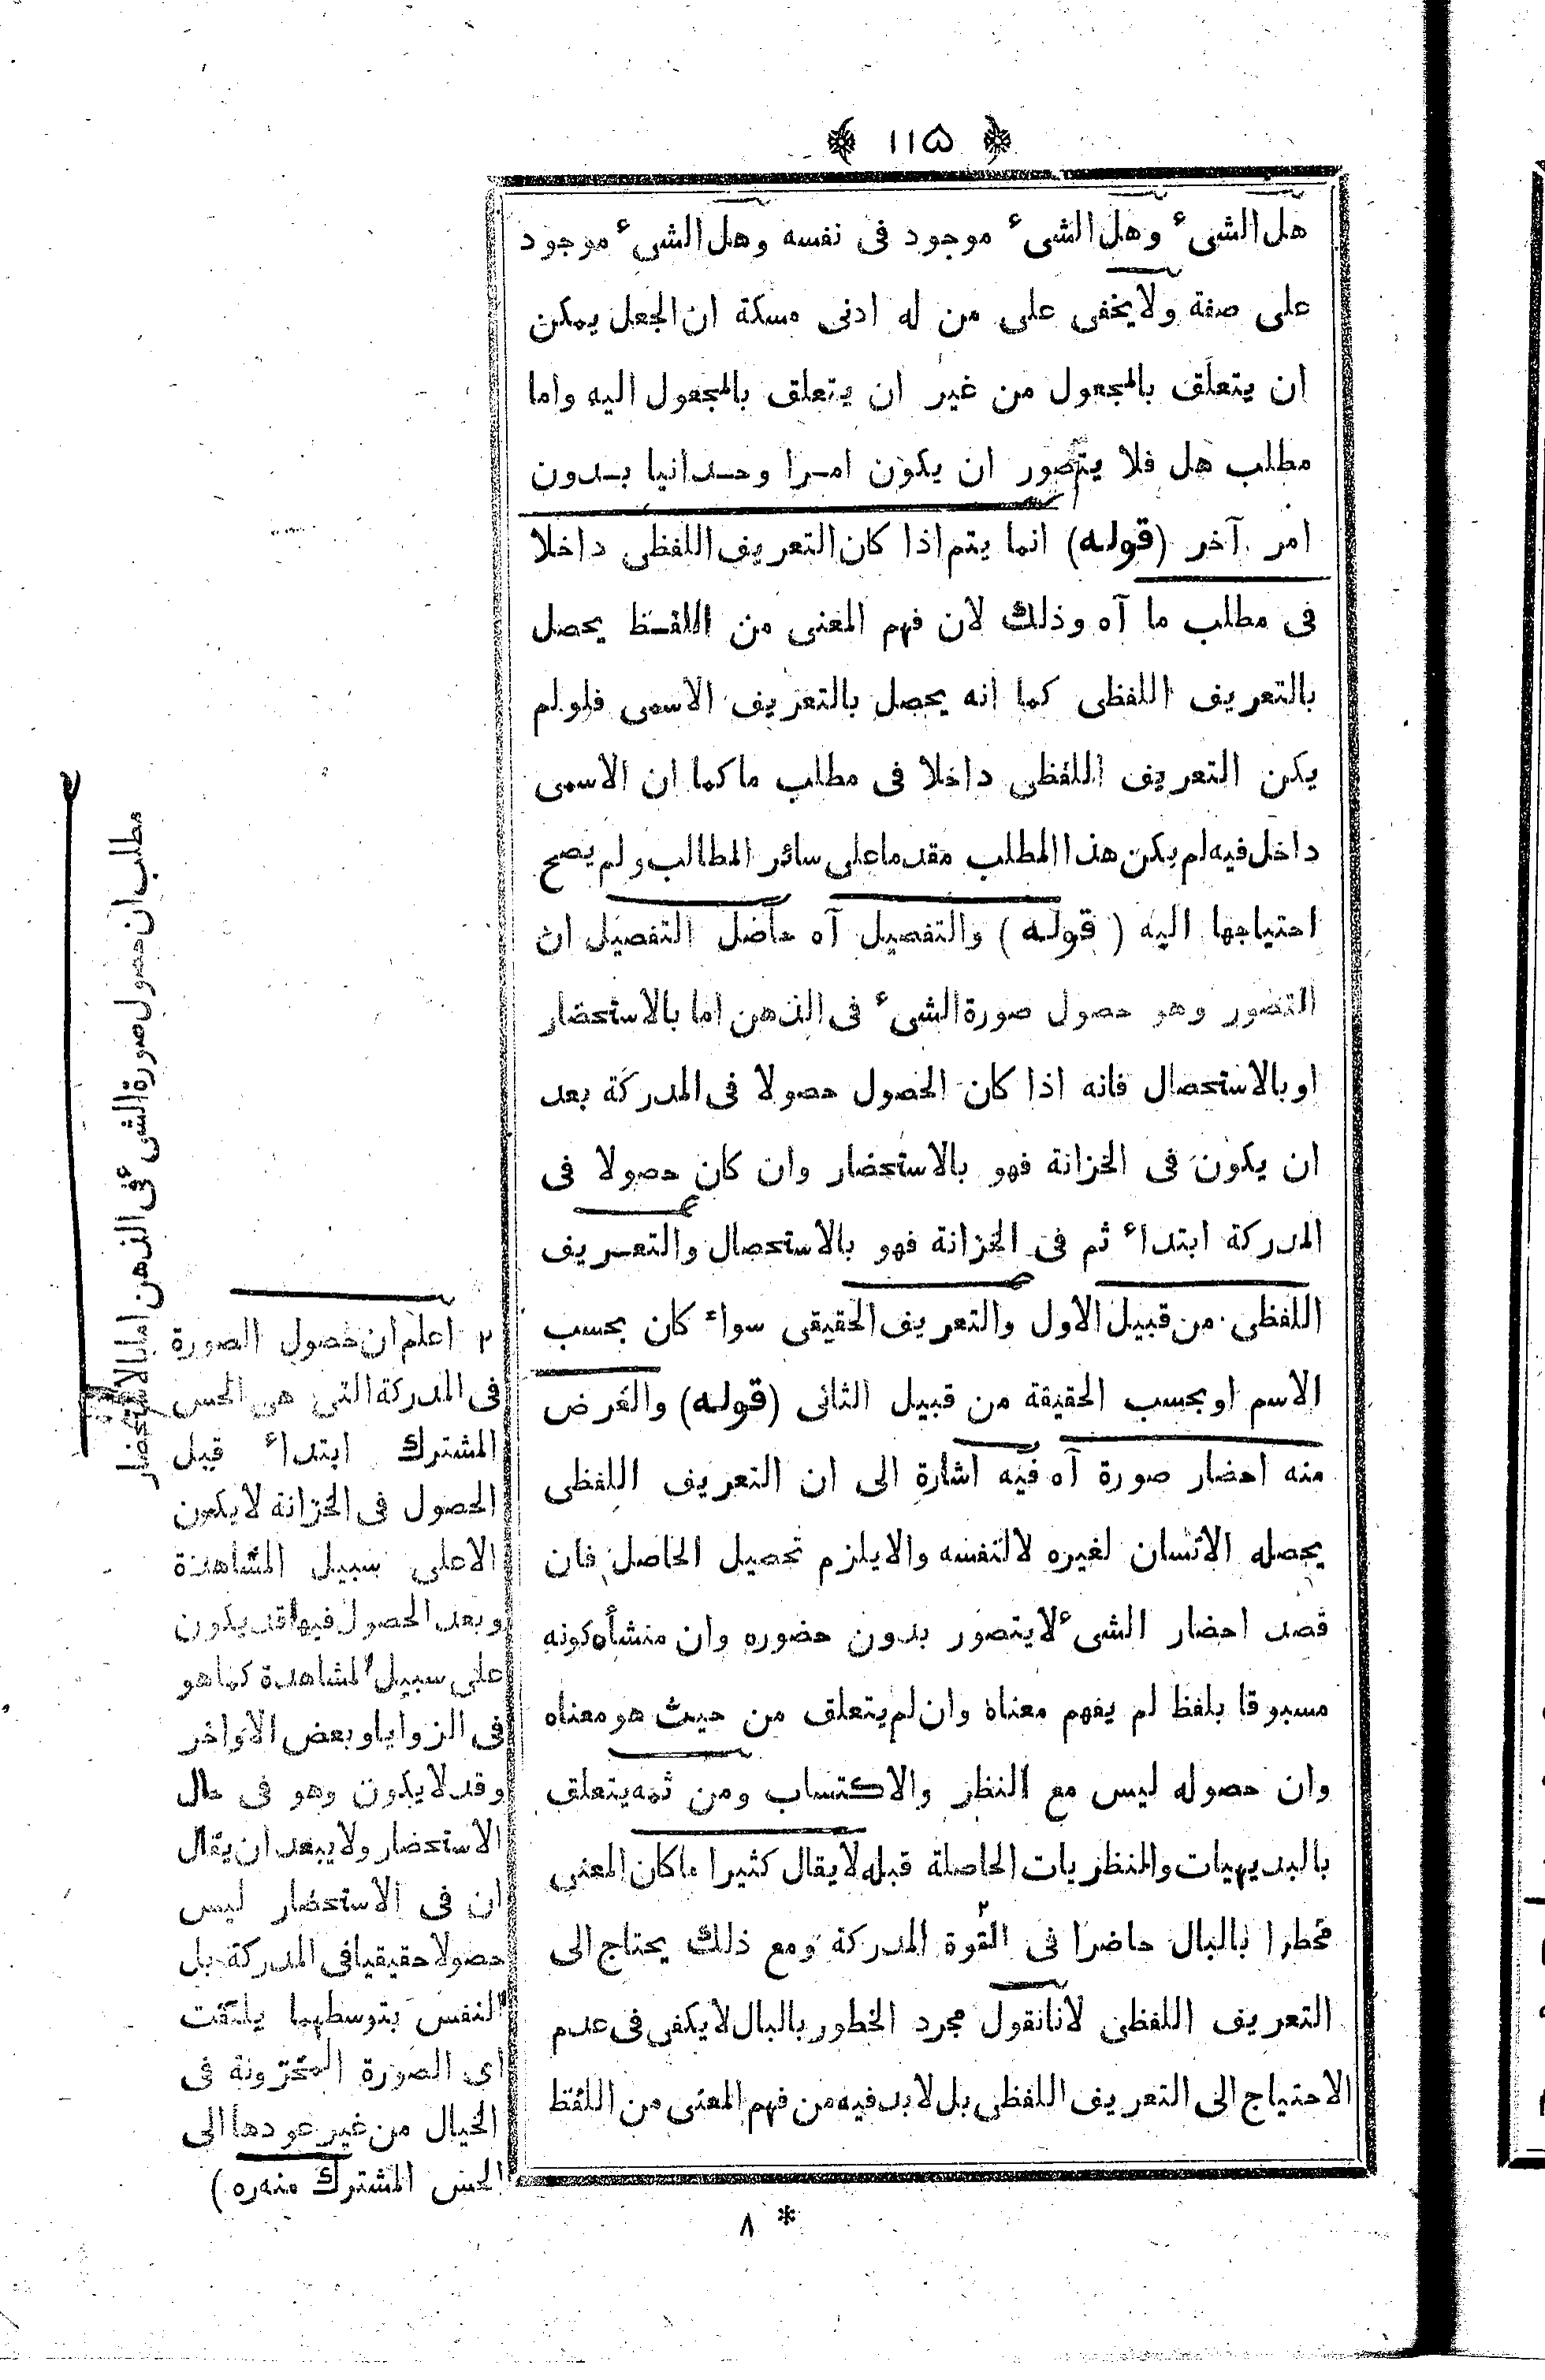 ١١۵
هل الشیء وهل الشیء موجود فی نفسه وهل الشیء موجود
علی صفة ولا یخفی علی من له ادنی مسكة ان الجعل یمكن
ان یتعلق بالمجعول من غیر ان یتعلق بالمجعول الیه واما
مطلب هل فلا یتصور ان یكون امرا وحدانیا بدون
امر آخر (قوله) انما یتم اذا كان التعریف اللفظی داخلا
فی مطلب ما آه وذلك لان فهم المعنی من اللفظ یحصل
بالتعریف اللفظی كما انه یحصل بالتعریف الاسمی فلو لم
یكن التعریف اللفظی داخلا فی مطلب ما كما ان الاسمی
داخل فیه لم یكن هذا المطلب مقدما علی سائر المطالب ولم یصح
احتیاجها الیه (قوله) والتفصیل آه حاصل التفصیل ان
التصور وهو حصول صورة الشیء فی الذهن اما بالاستحضار
او بالاستحصال فانه اذا كان الحصول حصولا فی المدركة بعد
ان یكون فی الخزانة فهو بالاستحضار وان كان حصولا فی
المدركة ابتداء ثم فی الخزانة فهو بالاستحصال والتعریف
اللفظی من قبیل الاول والتعریف الحقیقی سواء كان بحسب
الاسم او بحسب الحقیقة من قبیل الثانی (قوله) والغرض
منه احضار صورة آه فیه اشارة الی ان التعریف اللفظی
یحصله الانسان لغیره لا لنفسه والا یلزم تحصیل الحاصل فان
قصد احضار الشیء لا یتصور بدون حضوره وان منشأه كونه
مسبوقا بلفظ لم یفهم معناه وان لم یتعلق من حیث هو معناه
وان حصوله لیس مع النظر والاكتساب ومن ثمه یتعلق
بالبدیهیات والنظریات الحاصلة قبله لا یقال كثیرا ما كان المعنی
مخطرا بالبال حاضرا فی القوة المدركة ٢ ومع ذلك یحتاج الی
التعریف اللفظی لانا نقول مجرد الخطور بالبال لا یكفی فی عدم
الاحتیاج الی التعریف اللفظی بل لا بد فیه من فهم المعنی من اللفظ
٨ *
مطلب ان حصول صورة الشیء فی الذهن اما بالاستحضار
٢ اعلم ان حصول الصورة
فی المدركة التی هی الحس
المشترك ابتداء قبل
الحصول فی الخزانة لا یكون
الا علی سبیل المشاهدة
وبعد الحصول فیها قد یكون
علی سبیل المشاهدة كما هو
فی الزوایا وبعض الاواخر
وقد لا یكون وهو فی حال
الاستحضار ولا یبعد ان یقال
ان فی الاستحضار لیس
حصولا حقیقیا فی المدركة بل
النفس بتوسطهما یلتفت
ای الصورة المخزونة فی
الخیال من غیر عودها الی
الحس المشترك منه ره)